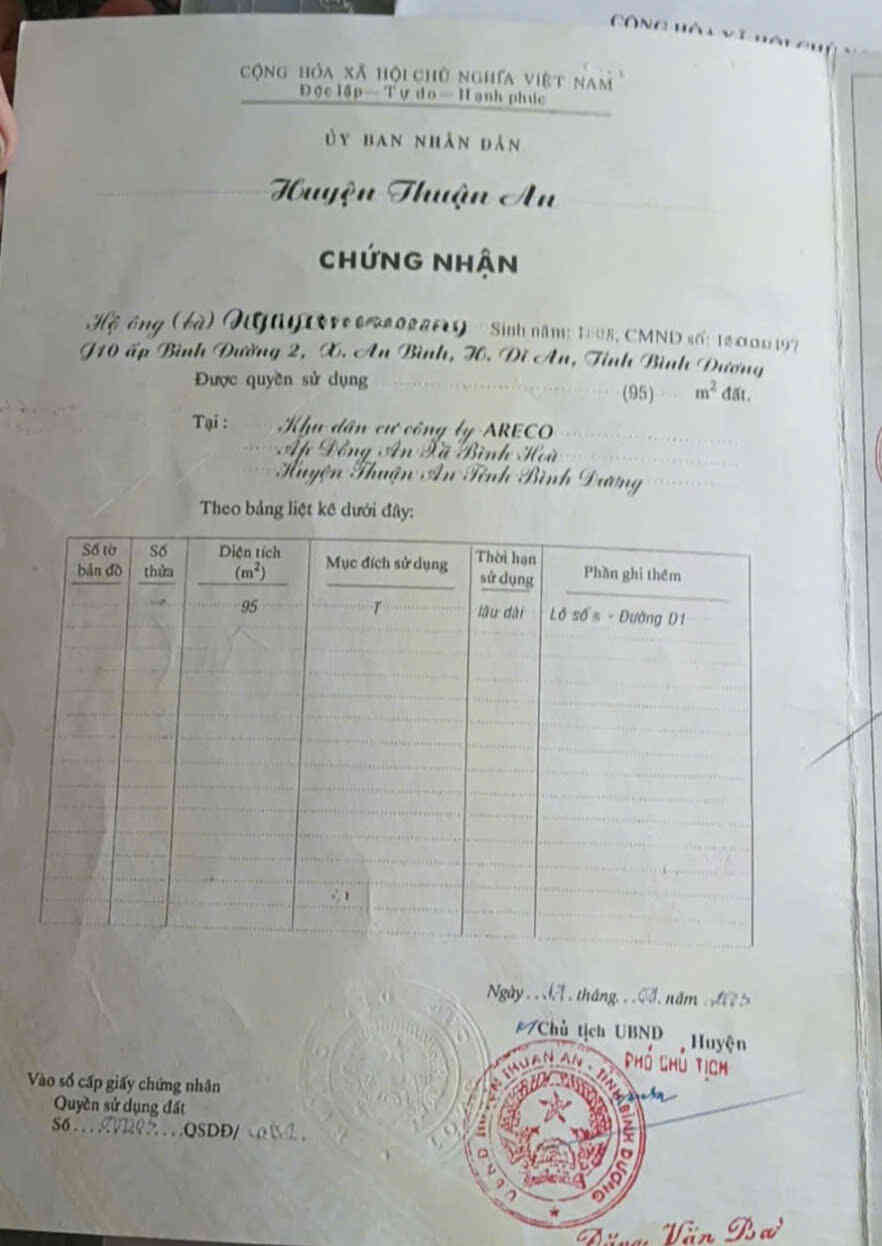 CỘNG HÒA XÃ HỘI CHỦ
CỘNG HÒA XÃ HỘI CHỦ NGHĨA VIỆT NAM
Độc lập — Tự do — Hạnh phúc
ỦY BAN NHÂN DÂN
Huyện Thuận An
CHỨNG NHẬN
Hộ ông (bà) Sinh năm: CMND số:
J10 ấp Bình Đường 2, X. An Bình, H. Dĩ An, Tỉnh Bình Dương
Được quyền sử dụng (95) m² đất.
Tại : Khu dân cư công ty ARECO
Ấp Đồng An Xã Bình Hoà
Huyện Thuận An Tỉnh Bình Dương
Theo bảng liệt kê dưới đây:
Số tờ bản đồ
Số thửa
Diện tích (m²)
Mục đích sử dụng
Thời hạn sử dụng
Phần ghi thêm
95 T lâu dài Lô số - Đường D1
Ngày tháng năm
Chủ tịch UBND Huyện
PHÓ CHỦ TỊCH
U.B.N.D HUYỆN THUẬN AN - TỈNH BÌNH DƯƠNG
Vào sổ cấp giấy chứng nhận
Quyền sử dụng đất
Số QSDĐ/
Đặng Văn Ba